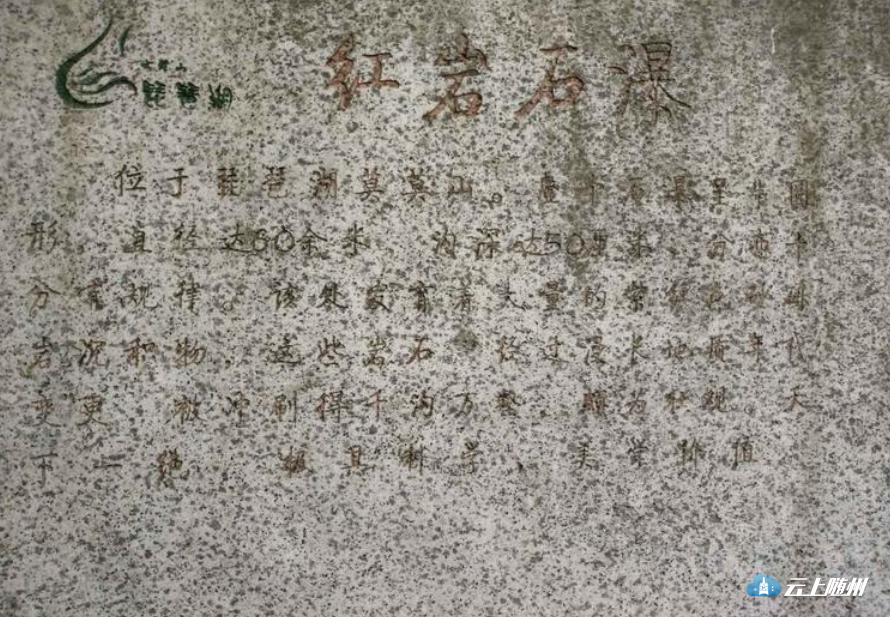 七尖山
琵琶湖
红岩石瀑
位于琵琶湖莫莫山。整个石瀑呈半圆
形,直径达60余米,沟深达50余米,分布十
分有规律。该处发育着大量的紫红色砂砾
岩沉积物,这些岩石,经过漫长地掩年代
变更,被冲刷得千沟万壑,颇为壮观。天
下一绝,极具科学、美学价值
云上随州